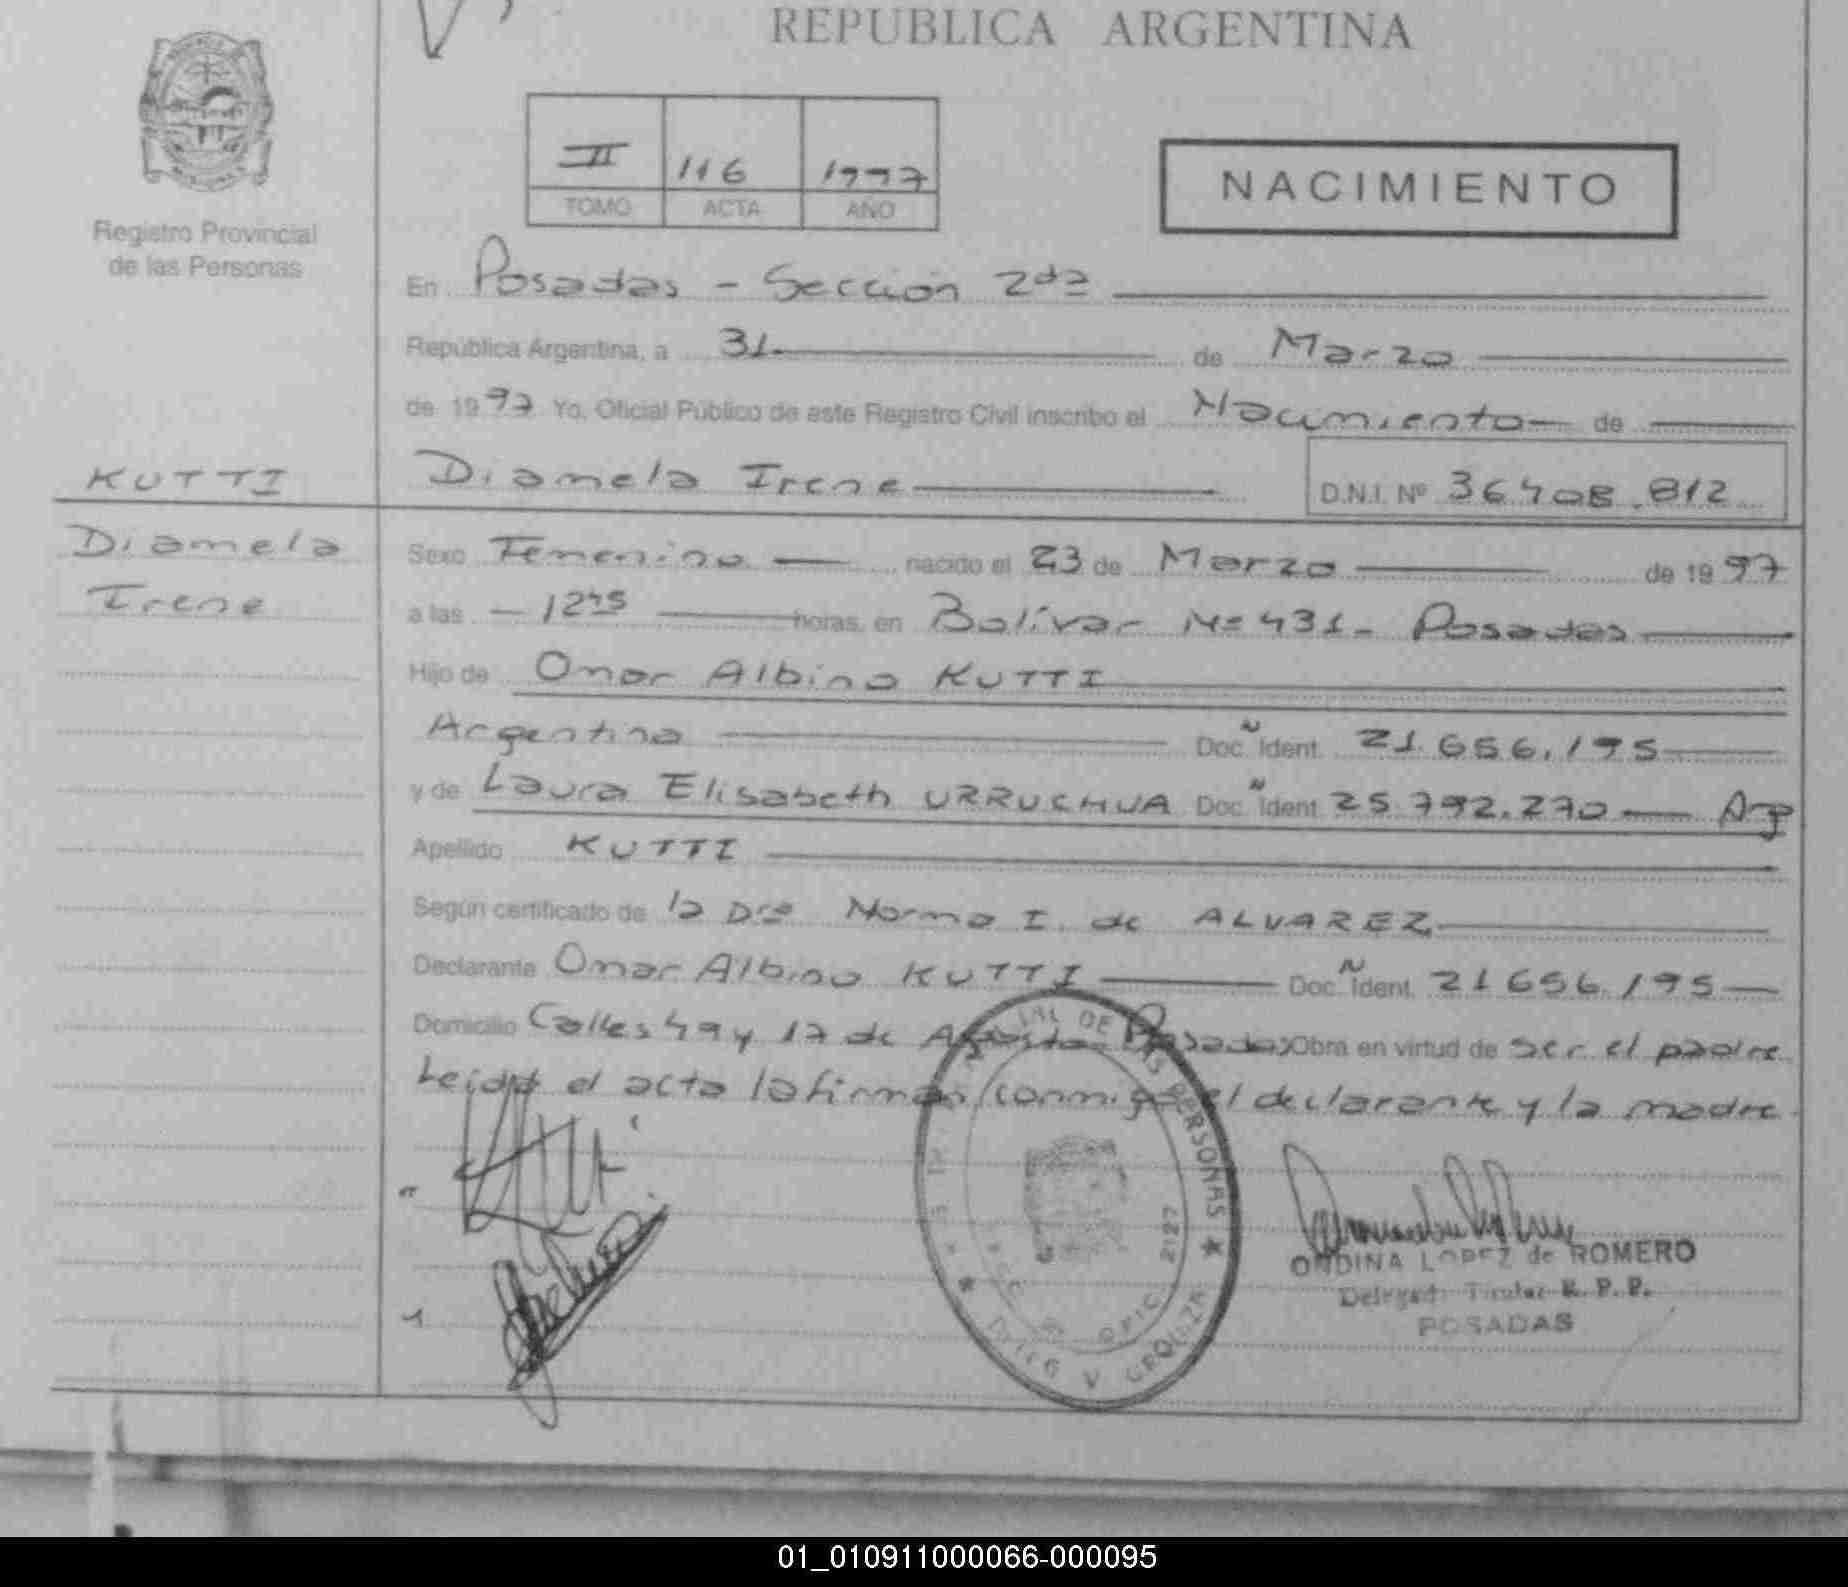 REPUBLICA ARGENTINA
II 116 1997
TOMO ACTA AÑO
NACIMIENTO
Registro Provincial
de las Personas
En Posadas - Sección 2da
República Argentina, a 31. de Marzo
de 1997 Yo, Oficial Público de este Registro Civil inscribo el Nacimiento de
KUTTI
Diamela Irene
D.N.I. Nº 36.408.812
Diamela
Irene
Sexo Femenino nacido el 23 de Marzo de 1997
a las - 12 45 horas, en Bolívar Nº 431 - Posadas
Hijo de Omar Albino KUTTI
Argentina Doc. Ident. 21.656.195
y de Laura Elisabeth URRUCHUA Doc. Ident. 25.792.270 Arg
Apellido KUTTI
Según certificado de la Dra Norma I. de ALVAREZ
Declarante Omar Albino KUTTI Doc. Ident. 21.656.195
Domicilio Calles 49 y 17 de Agosto - Posadas Obra en virtud de ser el padre
Leida el acta la firman conmigo el declarante y la madre
DE LAS PERSONAS
OFIC. 2127
ONDINA LOPEZ de ROMERO
Delegada Titular R. P. P.
POSADAS
01_010911000066-000095